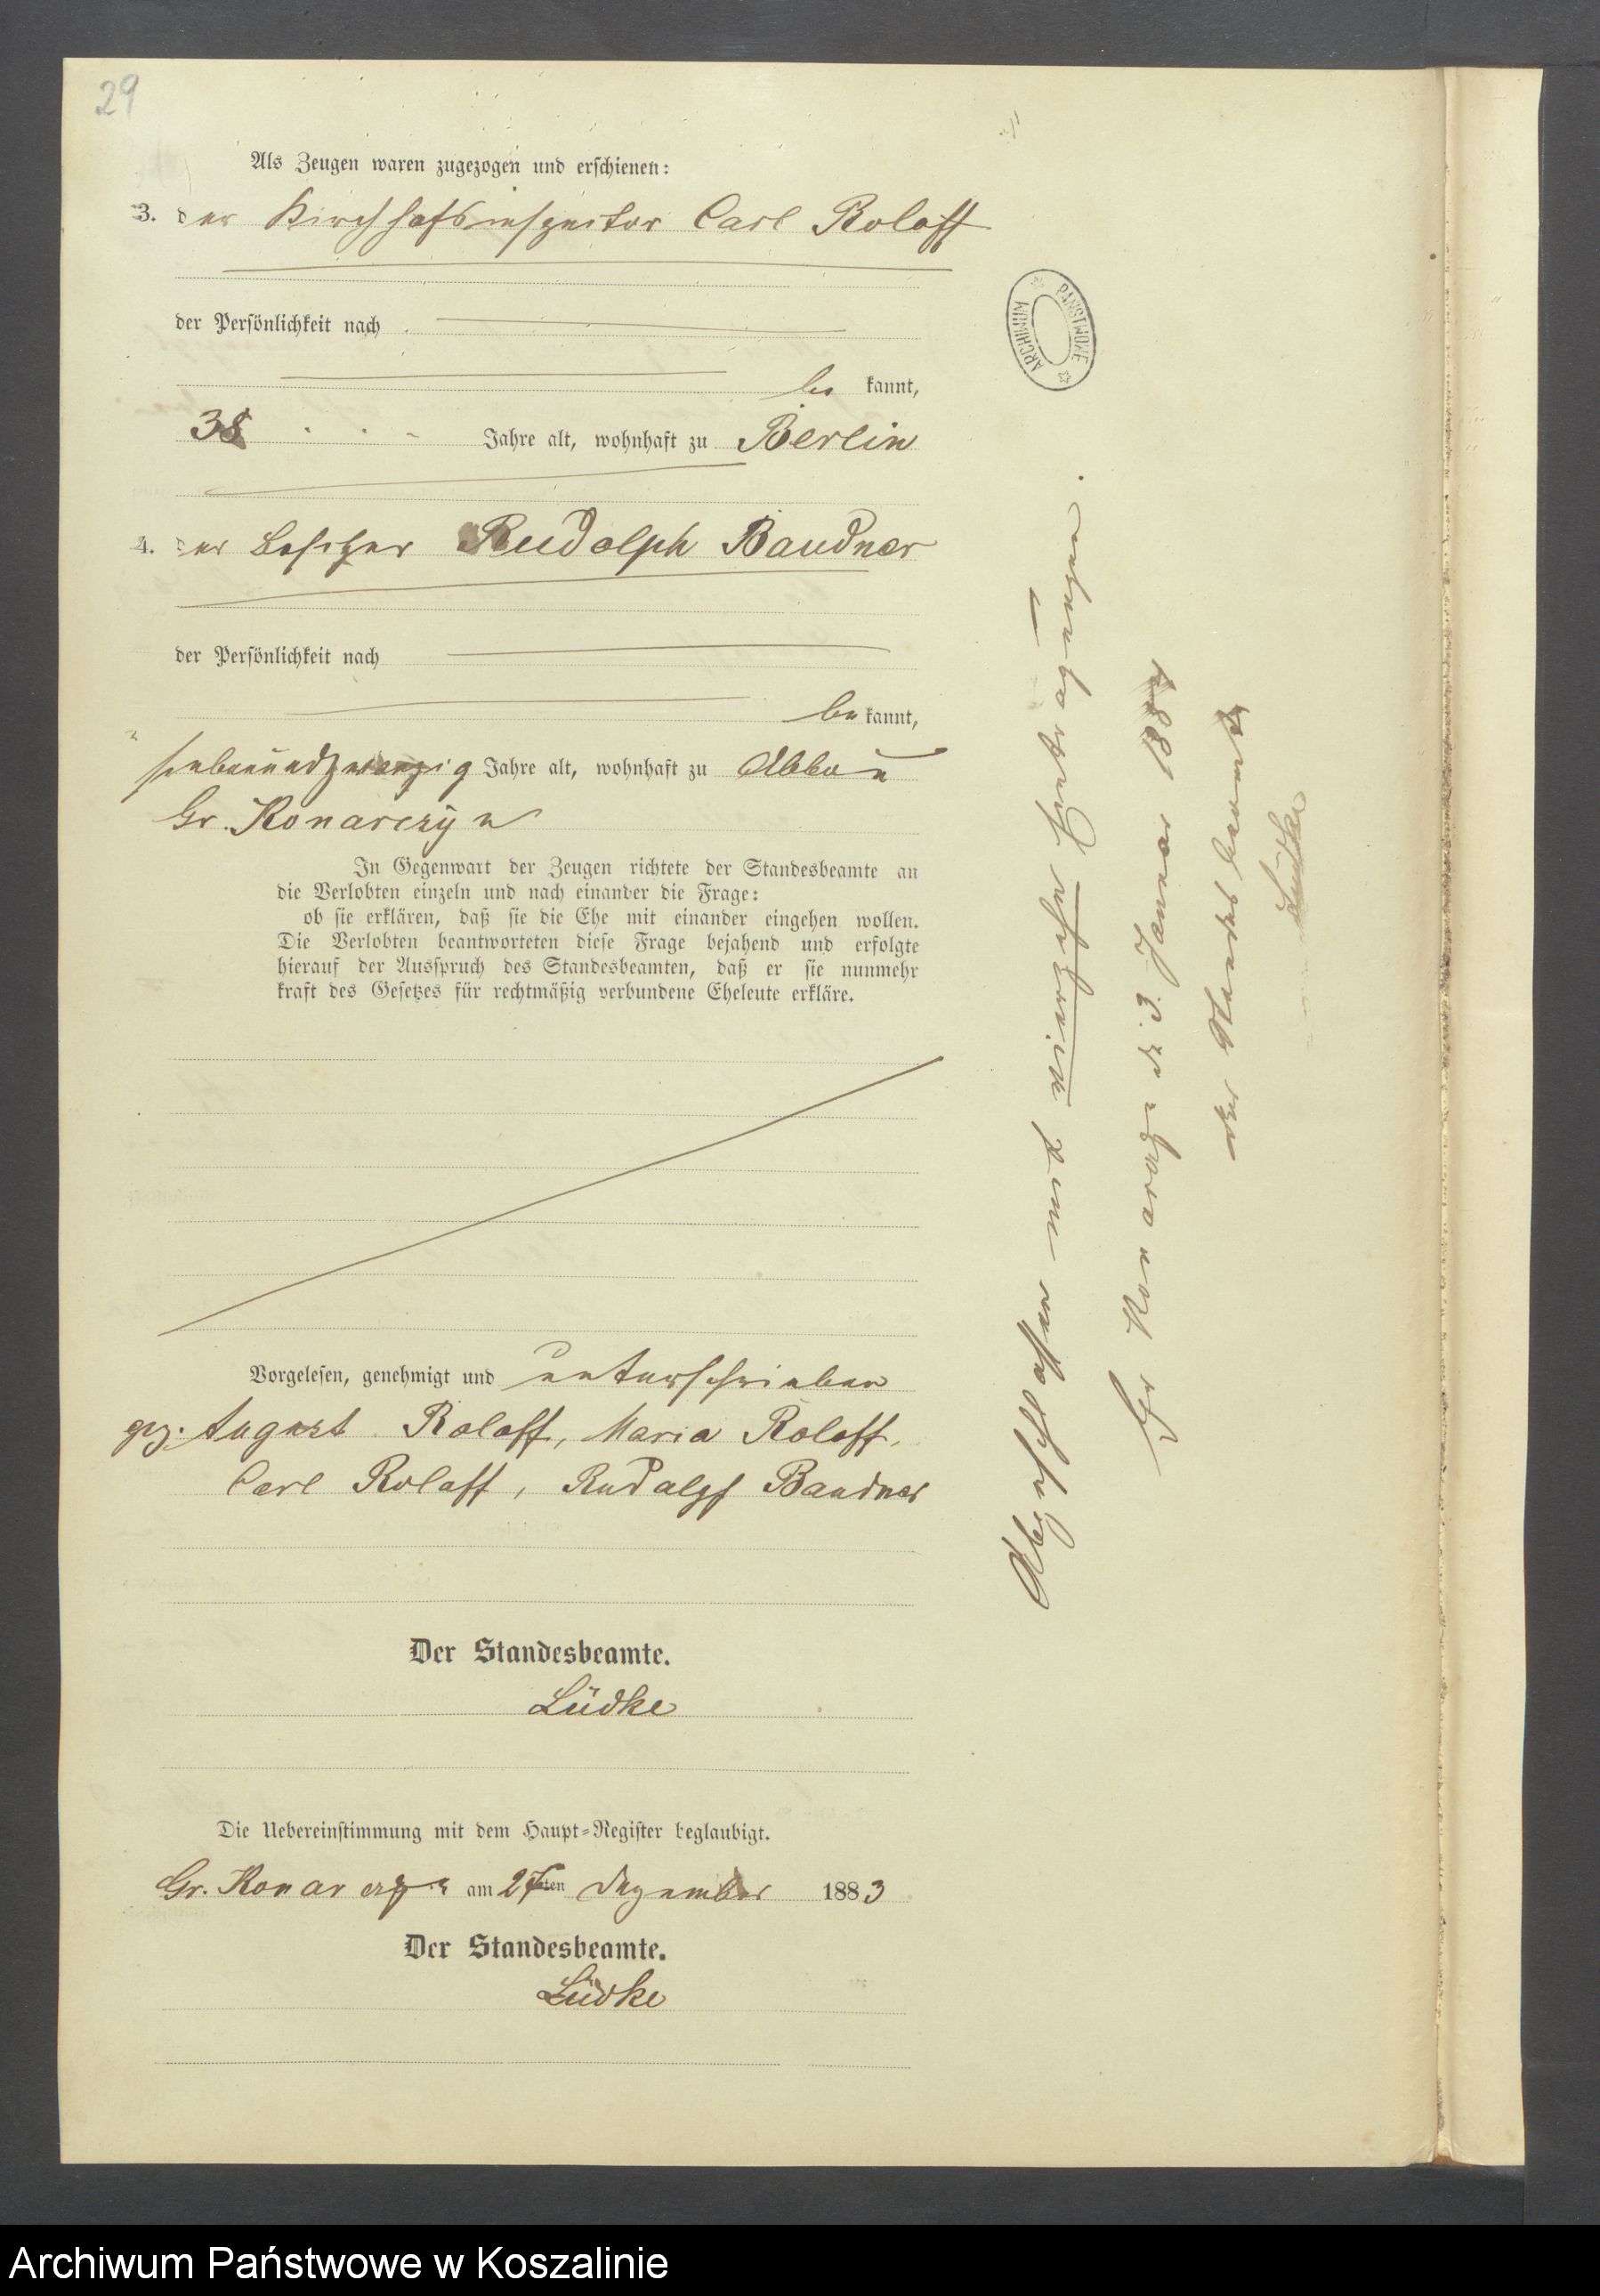 29
Als Zeugen waren zugezogen und erschienen:
3. der Kirchhofsinspector Carl Roloff
der Persönlichkeit nach
be kannt,
38 Jahre alt, wohnhaft zu Berlin
4. der Besitzer Rudolph Baudner
der Persönlichkeit nach
be kannt,
siebenundzwanzig Jahre alt, wohnhaft zu Abbau
Gr. Konarczyn
In Gegenwart der Zeugen richtete der Standesbeamte an
die Verlobten einzeln und nach einander die Frage:
ob sie erklären, daß sie die Ehe mit einander eingehen wollen.
Die Verlobten beantworteten diese Frage bejahend und erfolgte
hierauf der Ausspruch des Standesbeamten, daß er sie nunmehr
kraft des Gesetzes für rechtmäßig verbundene Eheleute erkläre.
Vorgelesen, genehmigt und unterschrieben
gez. August Roloff, Maria Roloff,
Carl Roloff, Rudolph Baudner
Der Standesbeamte.
Lüdke
Die Uebereinstimmung mit dem Haupt-Register beglaubigt.
Gr. Konarczyn am 27ten Dezember 1883
Der Standesbeamte.
Lüdke
ARCHIWUM PAŃSTWOWE
Abgeschlossen mit vierzehn Eintragungen.
Gr Konarczyn d. 3. Januar 1884
Der Standesbeamte
Lüdke
Archiwum Państwowe w Koszalinie